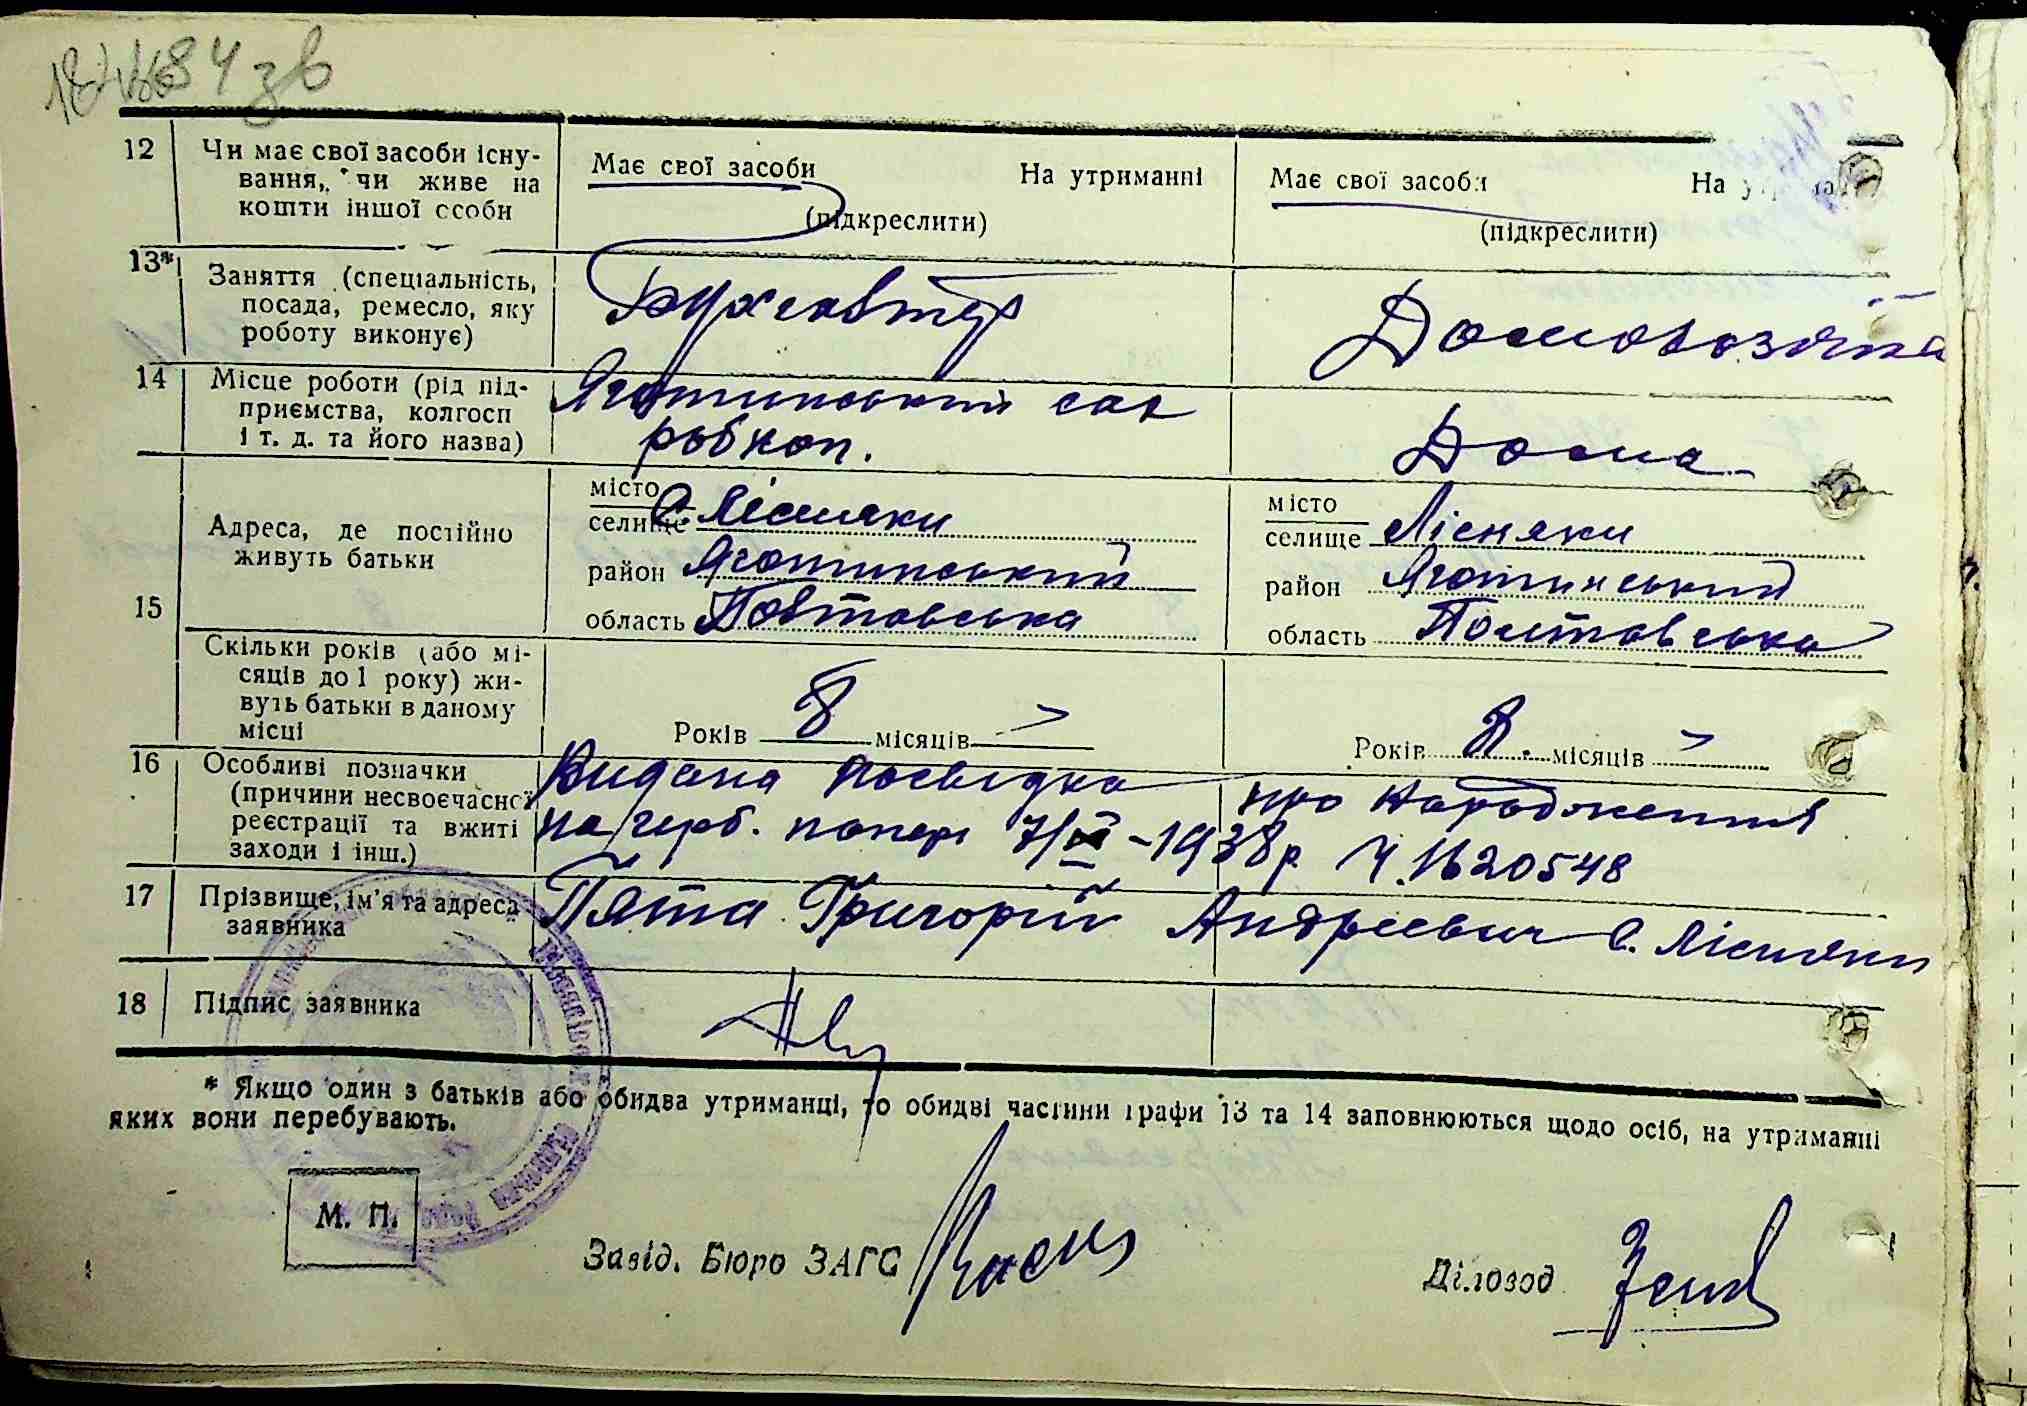 184684 зв
12 Чи має свої засоби існу-
вання, чи живе на
кошти іншої особи
Має свої засоби На утриманні
(підкреслити)
Має свої засоби На
(підкреслити)
13* Заняття (спеціальність,
посада, ремесло, яку
роботу виконує)
Бухгалтер
Домохозяйка
14 Місце роботи (рід під-
приємства, колгосп
і т. д. та його назва)
Яготинський сах
робкоп.
Дома
15 Адреса, де постійно
живуть батьки
місто
селище С. Лісняки
район Яготинський
область Полтавська
місто
селище Лісняки
район Яготинський
область Полтавська
Скільки років (або мі-
сяців до 1 року) жи-
вуть батьки в даному
місці
Років 8 місяців —
Років 8. місяців —
16 Особливі позначки
(причини несвоєчасної
реєстрації та вжиті
заходи і інш.)
Видана посвідка про народження
на герб. папері 7/ -1938 р. Ч. 1620548
17 Прізвище, ім'я та адреса
заявника
Пята Григорій Андрієвич С. Лісняки
18 Підпис заявника
* Якщо один з батьків або обидва утриманці, то обидві частини графи 13 та 14 заповнюються щодо осіб, на утриманні
яких вони перебувають.
М. П.
Завід. Бюро ЗАГС
Діловод